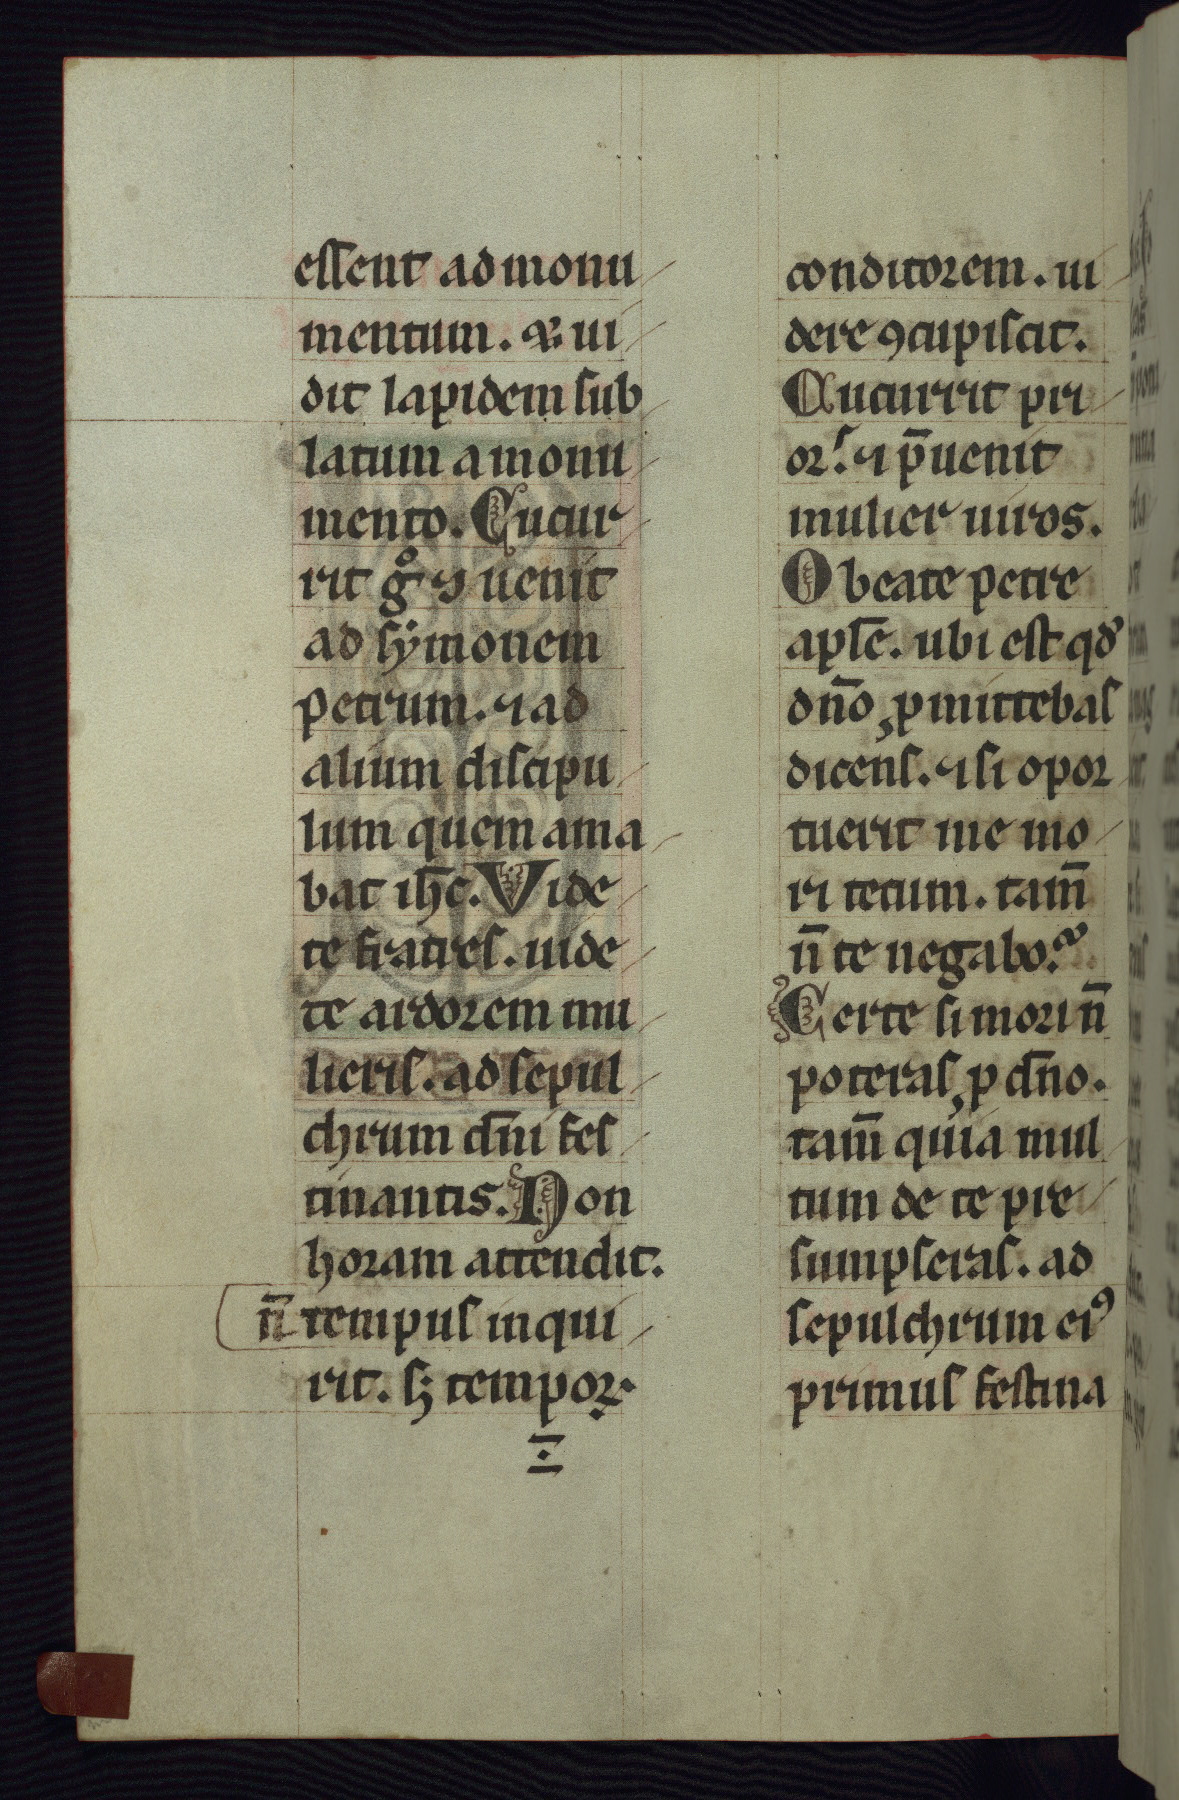 essent ad monu
mentum. & ui
dit lapidem sub
latum a monu
mento. Cucur
rit gͦ ⁊ uenit
ad sẏmonem
petrum. ⁊ ad
alium discipu
lum quem ama
bat ih̄c. Vide
te fratres. uide
te ardorem mu
lieris. ad sepul
chrum dn̄i fes
tinantis. Non
horam attendit.
n̄ tempus inqui
rit. sꝫ tempoꝝ
conditorem. ui
dere ꝯcupiscit.
Cucurrit pri
or. ⁊ p̄uenit
mulier uiros.
O beate petre
apl̄e. ubi est qd̓
dn̄o ꝓmittebas
dicens. ⁊ si opor
tuerit me mo
ri tecum. tam̄
n̄ te negabo?
Certe si mori n̄
poteras ꝓ dn̄o.
tam̄ quia mul
tum de te pre
sumpseras. ad
sepulchrum eiꝰ
primus festina